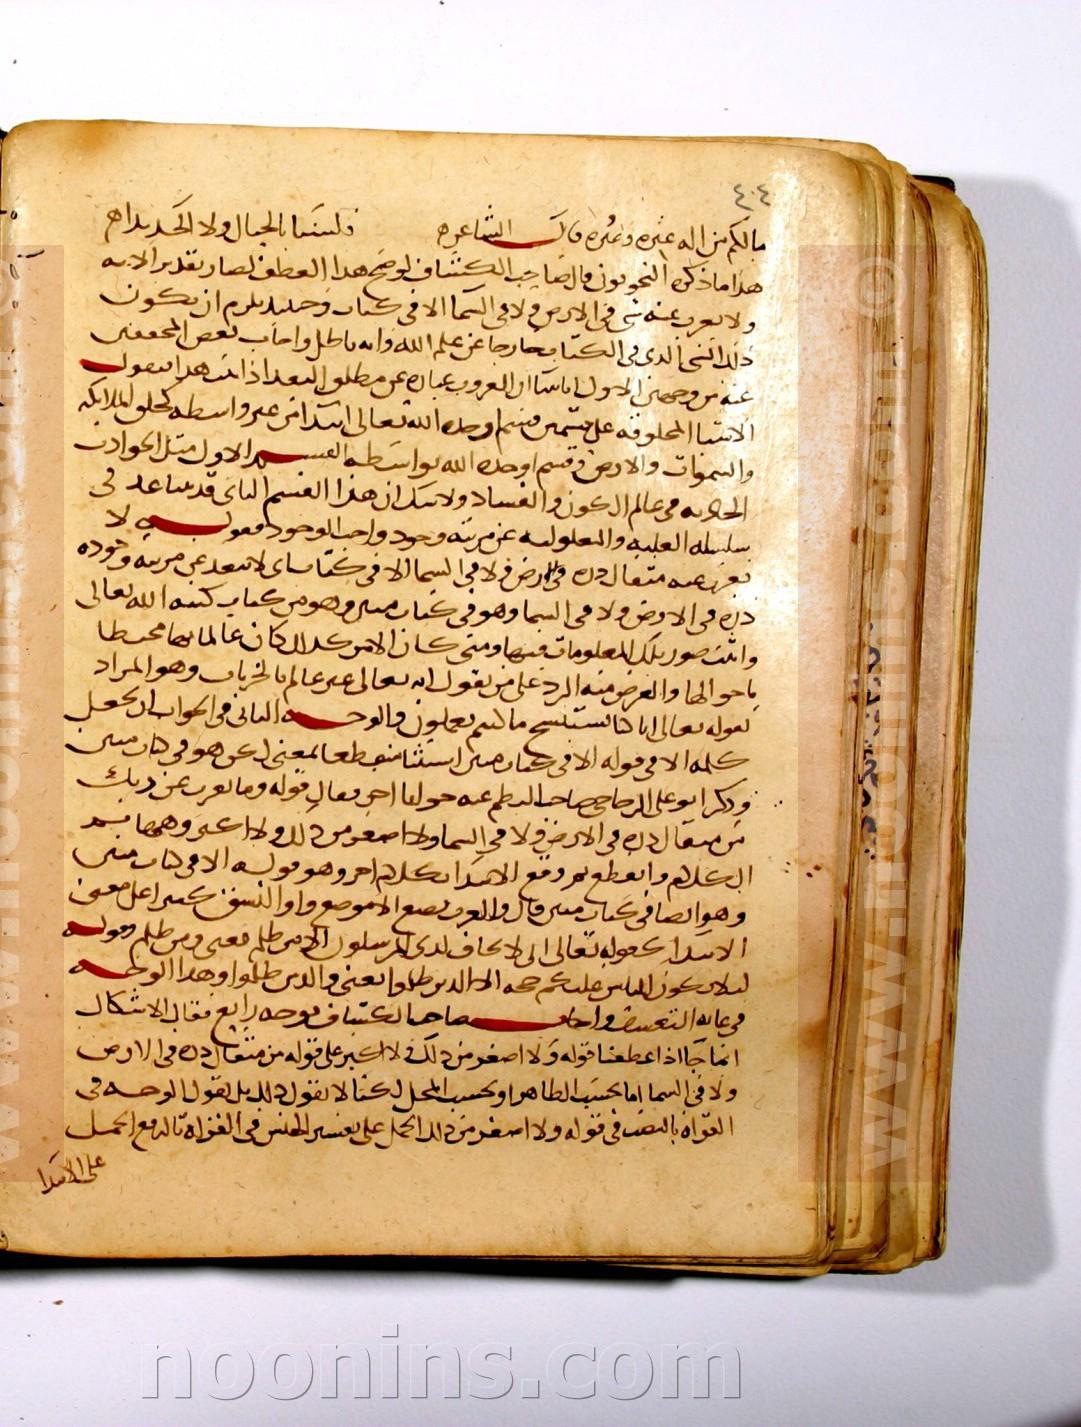 ٤٠٤
مالكم من اله غيره وغيره قال الشاعر فلسنا بالجبال ولا الحديدا هم
هذا ما ذكره النحويون قال صاحب الكشاف لو صح هذا العطف لصار تقدير الآية
ولا يعزب عنه شئ في الارض ولا في السما الا في كتاب وحينئذ يلزم ان يكون
ذلك الشئ الذي في الكتاب خارجا عن علم الله وانه باطل واجاب بعض المحققين
عنه من وجهين الاول انا بينا ان العزوب عباره عن مطلق البعد اذا ثبت هذا فنقول
الاشيا المخلوقه على قسمين قسم اوجده الله تعالى ابتدا من غير واسطه كخلق الملايكه
والسموات والارض وقسم اوجده الله بواسطه القسم الاول مثل الحوادث
الحادثه في عالم الكون والفساد ولا شك ان هذا القسم الثاني قد يتباعد في
سلسله العليه والمعلوليه عن مرتبه وجود واجب الوجود فقوله لا
يعزب عنه مثقال ذره في الارض ولا في السما الا في كتاب اي لا يبعد عن مرتبه وجوده
ذره في الارض ولا في السما وهو في كتاب مبين وهو من كتاب كتبه الله تعالى
واثبت صور تلك المعلومات فيها ومتى كان الامر كذلك كان عالما بها محيطا
باحوالها والغرض منه الرد على من يقول انه تعالى غير عالم بالجزيات وهو المراد
بقوله تعالى انا كنا نستنسخ ما كنتم تعملون والوجه الثاني في الجواب ان يجعل
كلمه الا في قوله الا في كتاب مبين استثنا منقطعا بمعنى لكن هو في كتاب مبين
وذكر ابو علي الجرجاني صاحب النظم عنه جوابا اخر فقال قوله وما يعزب عن ربك
من مثقال ذره في الارض ولا في السما ولا اصغر من ذلك ولا اكبر وههنا تم
الكلام وانقطع ثم وقع الابتدا بكلام اخر وهو قوله الا في كتاب مبين
وهو ايضا في كتاب مبين قال والعرب تضع الا موضع واو النسق كثيرا على معنى
الابتدا كقوله تعالى اني لا يخاف لدي المرسلون الا من ظلم يعني ومن ظلم وقوله
ليلا يكون للناس عليكم حجه الا الذين ظلموا يعني والذين ظلموا وهذا الوجه
في غايه التعسف واجاب صاحب الكشاف بوجه رابع فقال الاشكال
انما جا اذا عطفنا قوله ولا اصغر من ذلك ولا اكبر على قوله من مثقال ذره في الارض
ولا في السما اما بحسب الظاهر او بحسب المحل لكنا لا نقول ذلك بل نقول الوجه في
القراه بالنصب في قوله ولا اصغر من ذلك الحمل على نفي الجنس وفي القراه بالرفع الحمل
على الابتدا
www.noonins.com
noonins.com